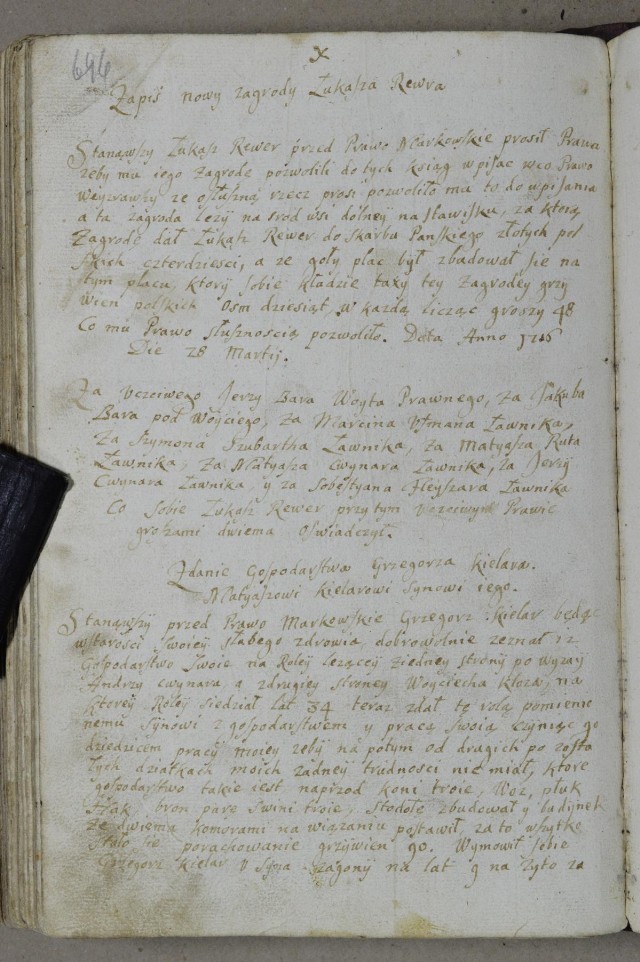 696
X
Zapis nowy zagrody Łukasza Rewra
Stanąwszy Łukasz Rewer przed Prawo Markowskie prosił Prawa
zeby mu iego Zagrodę pozwolili do tych ksiąg wpisac wco Prawo
Weyzrawszy ze osłuszną rzecz prosi pozwoliło mu to do wpisania
a ta zagroda lezy na srod wsi dolney na stawisku, za ktorą
Zagrodę dał Łukasz Rewer do Skarbu Panskiego złotych pol
skich czterdziesci, a ze goły plac był zbudował się na
tym placu, ktory sobie kładzie taxy tey Zagrodey grzy
wien polskich Osm dziesiąt, w kazdą licząc groszy 48
Co mu Prawo słusznoscią pozwoliło. Data Anno
Die 28 Martij.
Za Uczciwego Jerzy Bara Woyta Prawnego, za Jakuba
Bara pod Woyciego, za Marcina Ławnika,
Za Szymona Szubartha Ławnika, za Matyasza Ruta
Ławnika, za Matyasza Cwynara Ławnika, za Jerzy
Cwynara Ławnika y za Sobestyana Fleyszara Ławnika
Co Sobie Łukasz Rewer przy tym Uczciwym Prawie
groszami dwiema Oswiadczył.
Zdanie Gospodarstwa Grzegorza Kielara.
Matyaszowi Kielarowi Synowi iego.
Stanąwszy przed Prawo Markowskie Grzegorz Kielar będąc
wstarosci swoiey słabego zdrowia, dobrowolnie zeznał iz
Gospodarstwo Swoie na Roley lezącey ziedney strony po wyzay
Andrzy Cwynara, a zdrugiey stroney Woyciecha Kloza, na
ktorey Roley siedział lat 34 teraz zdał tę rolą pomienio
nemu Synowi z gospodarstwem y pracą Swoią czyniąc go
dziedzicem pracy moiey zeby na potym od drugich po zosta
łych dziatkach moich zadney trudnosci nie miał, ktore
gospodarstwo takie iest naprzod koni troie, Woz, płuk
bron parę swini troie, Stodołę zbudował y budynek
ze dwiema komorami na wiązaniu postawił, za to wszytko
stało się porachowanie grzywien 90. Wymowił sobie
Grzegorz Kielar U Syna zagony na lat 9 na zyto za